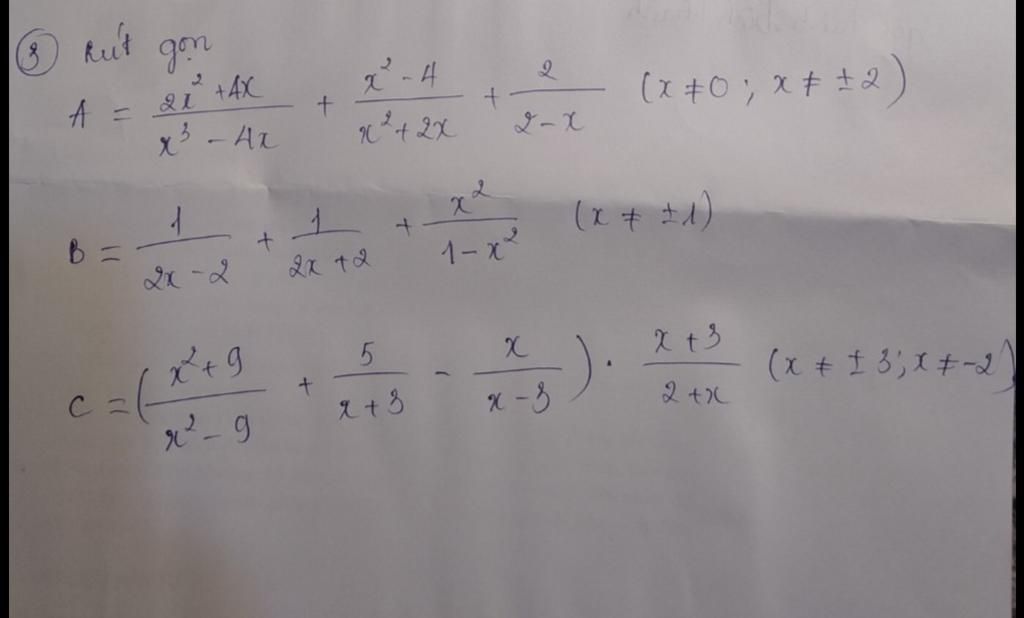 ③ Rút gọn
A = (2x² + 4x)/(x³ - 4x) + (x² - 4)/(x² + 2x) + 2/(2 - x) (x ≠ 0 ; x ≠ ± 2)
B = 1/(2x - 2) + 1/(2x + 2) + x²/(1 - x²) (x ≠ ± 1)
C = ((x² + 9)/(x² - 9) + 5/(x + 3) - x/(x - 3)) · (x + 3)/(2 + x) (x ≠ ± 3 ; x ≠ -2)